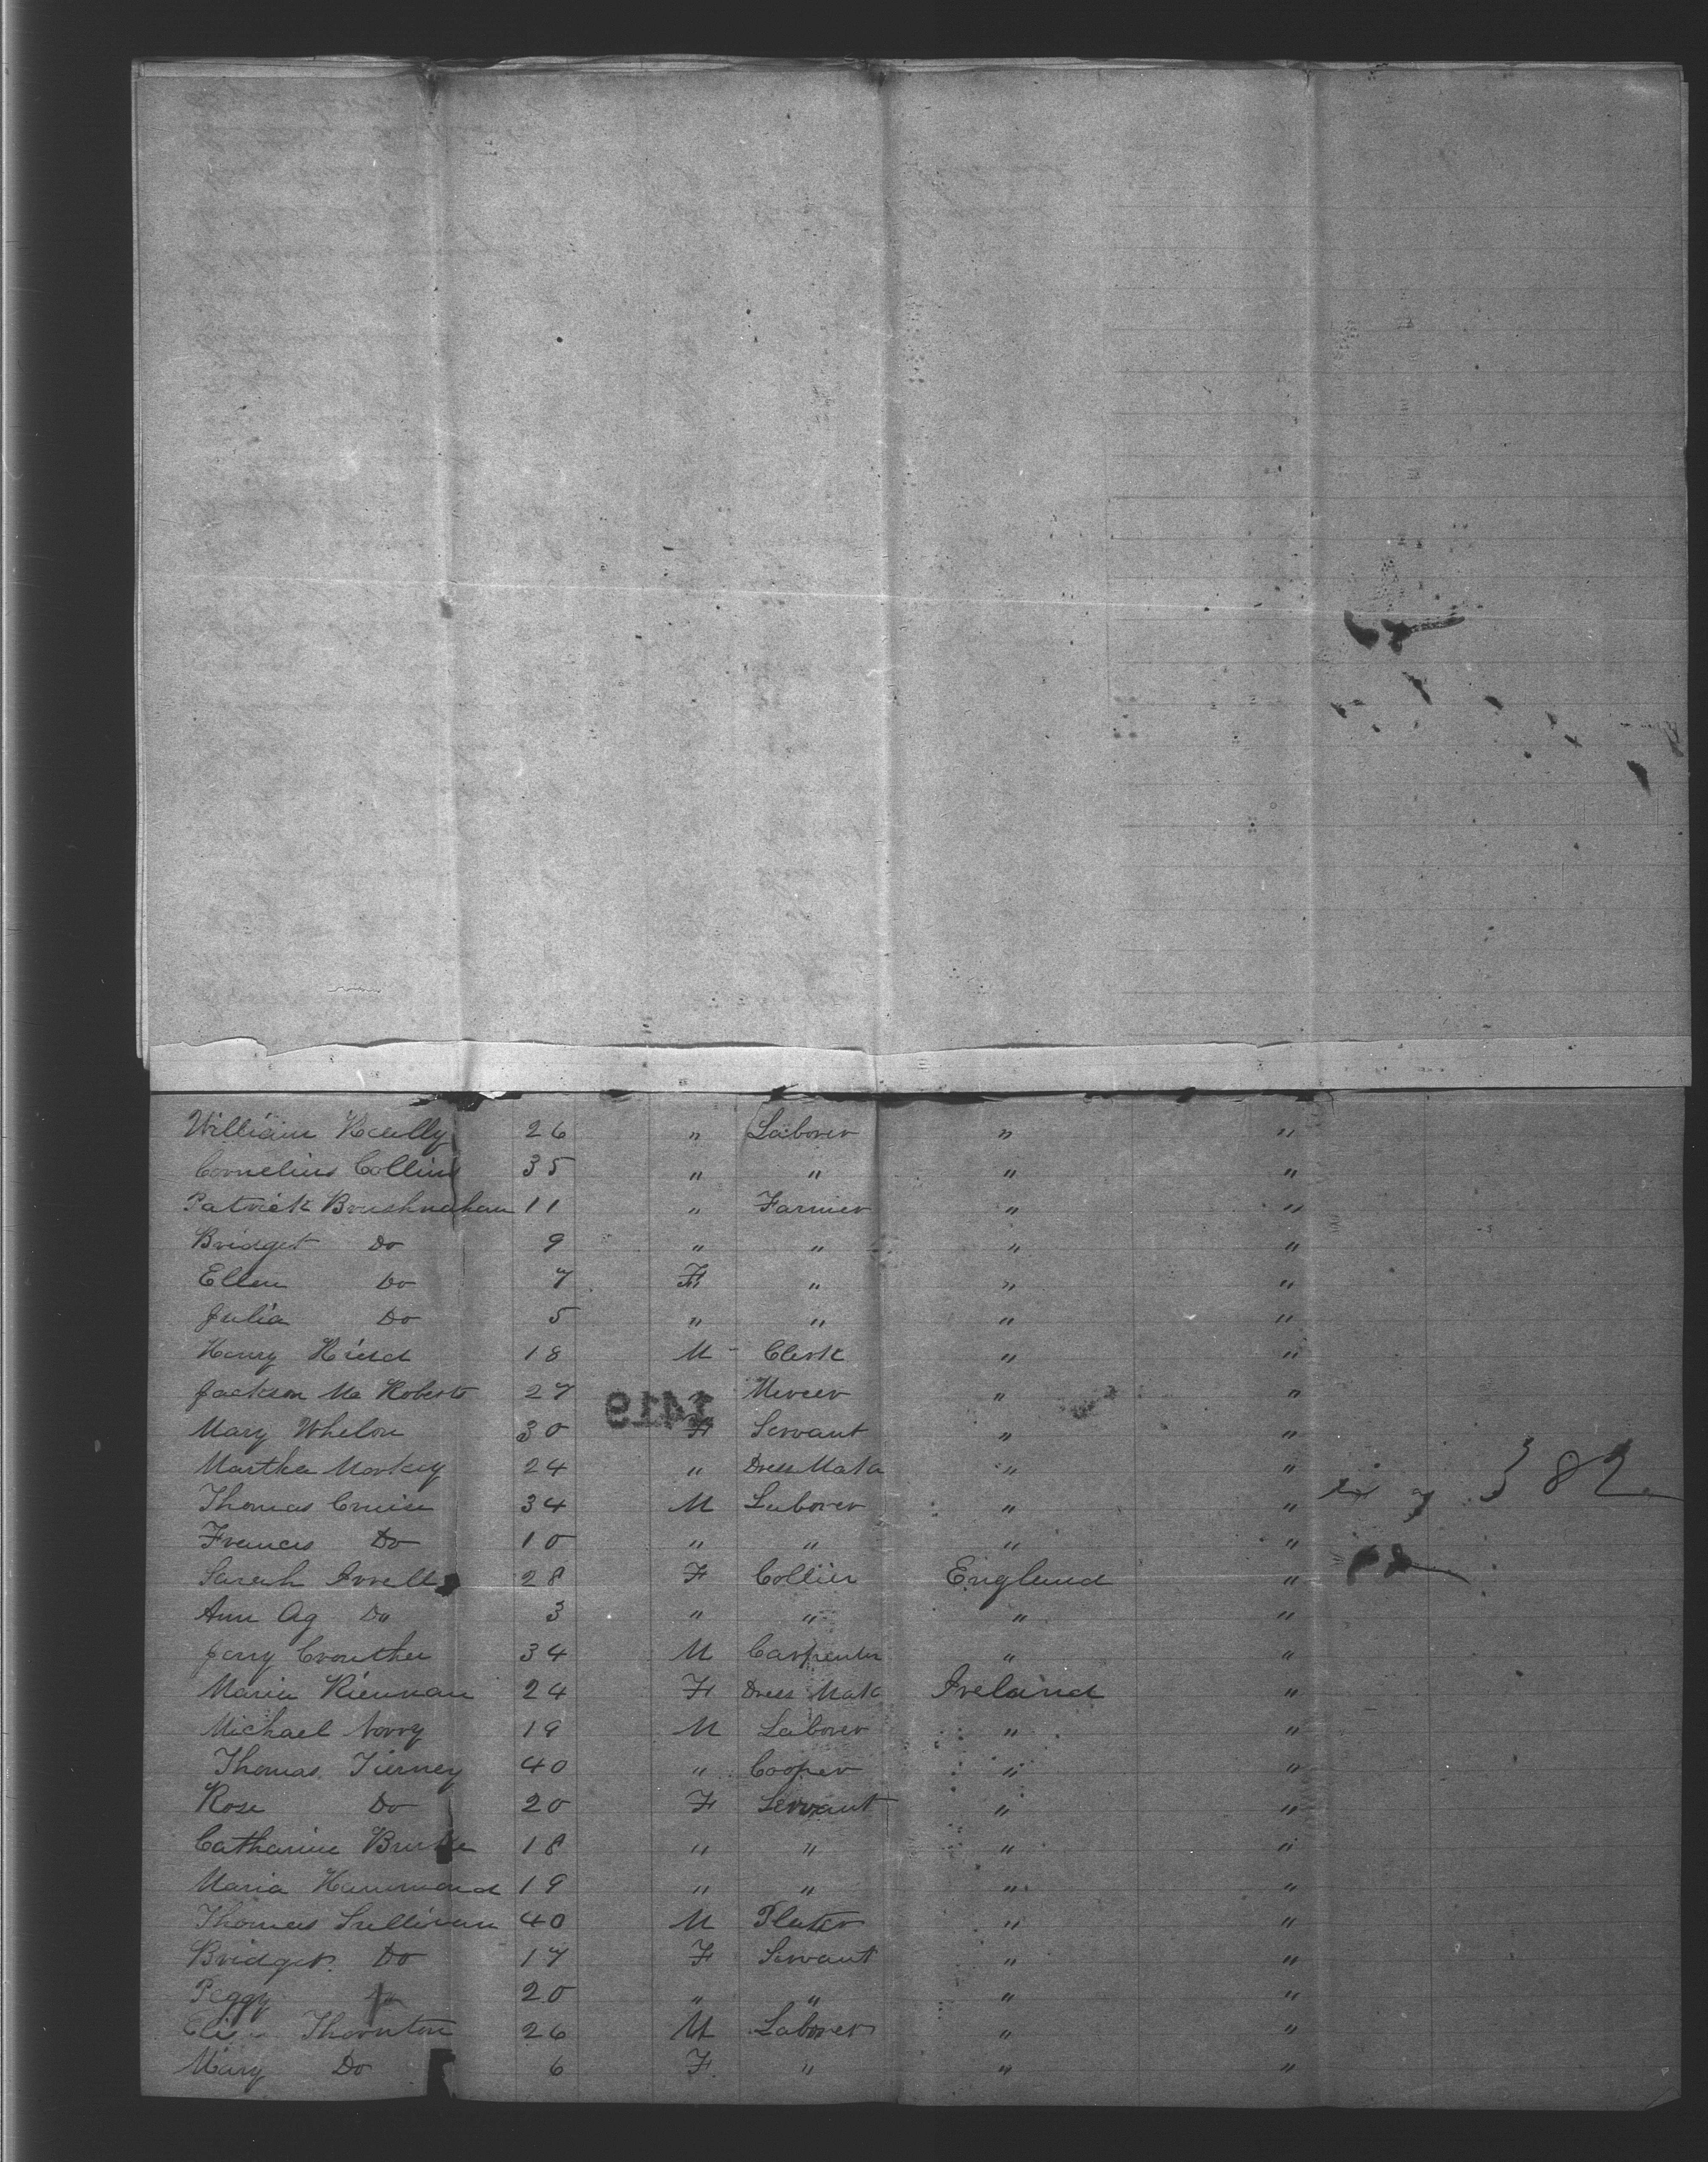 William Reilly 26 " Laborer " "
Cornelius Collins 35 " " " "
Patrick Brushnahan 11 " Farmer " "
Bridget Do 9 " " " "
Ellen Do 7 F " " "
Julia Do 5 " " " "
Henry 18 M Clerk " "
Jackson Mc Roberts 27 " Mercer " "
1419
Mary Whelon 30 F Servant " "
Martha Morkey 24 " Dress Mak " "
382
Thomas Cruise 34 M Laborer " "
Frances Do 10 " " " "
Sarah 28 F Collier England "
Ann Ag Do 3 " " " "
Jerry Crouther 34 M Carpenter " "
Maria Riernan 24 F Dress Mak Ireland "
Michael 19 M Laborer " "
Thomas Tierney 40 " Cooper " "
Rose Do 20 F Servant " "
Catharine Burke 18 " " " "
Maria Hammond 19 " " " "
Thomas Sullivan 40 M " "
Bridget Do 17 F Servant " "
Peggy 20 " " " "
Thornton 26 M Laborer " "
Mary Do 6 F " " "